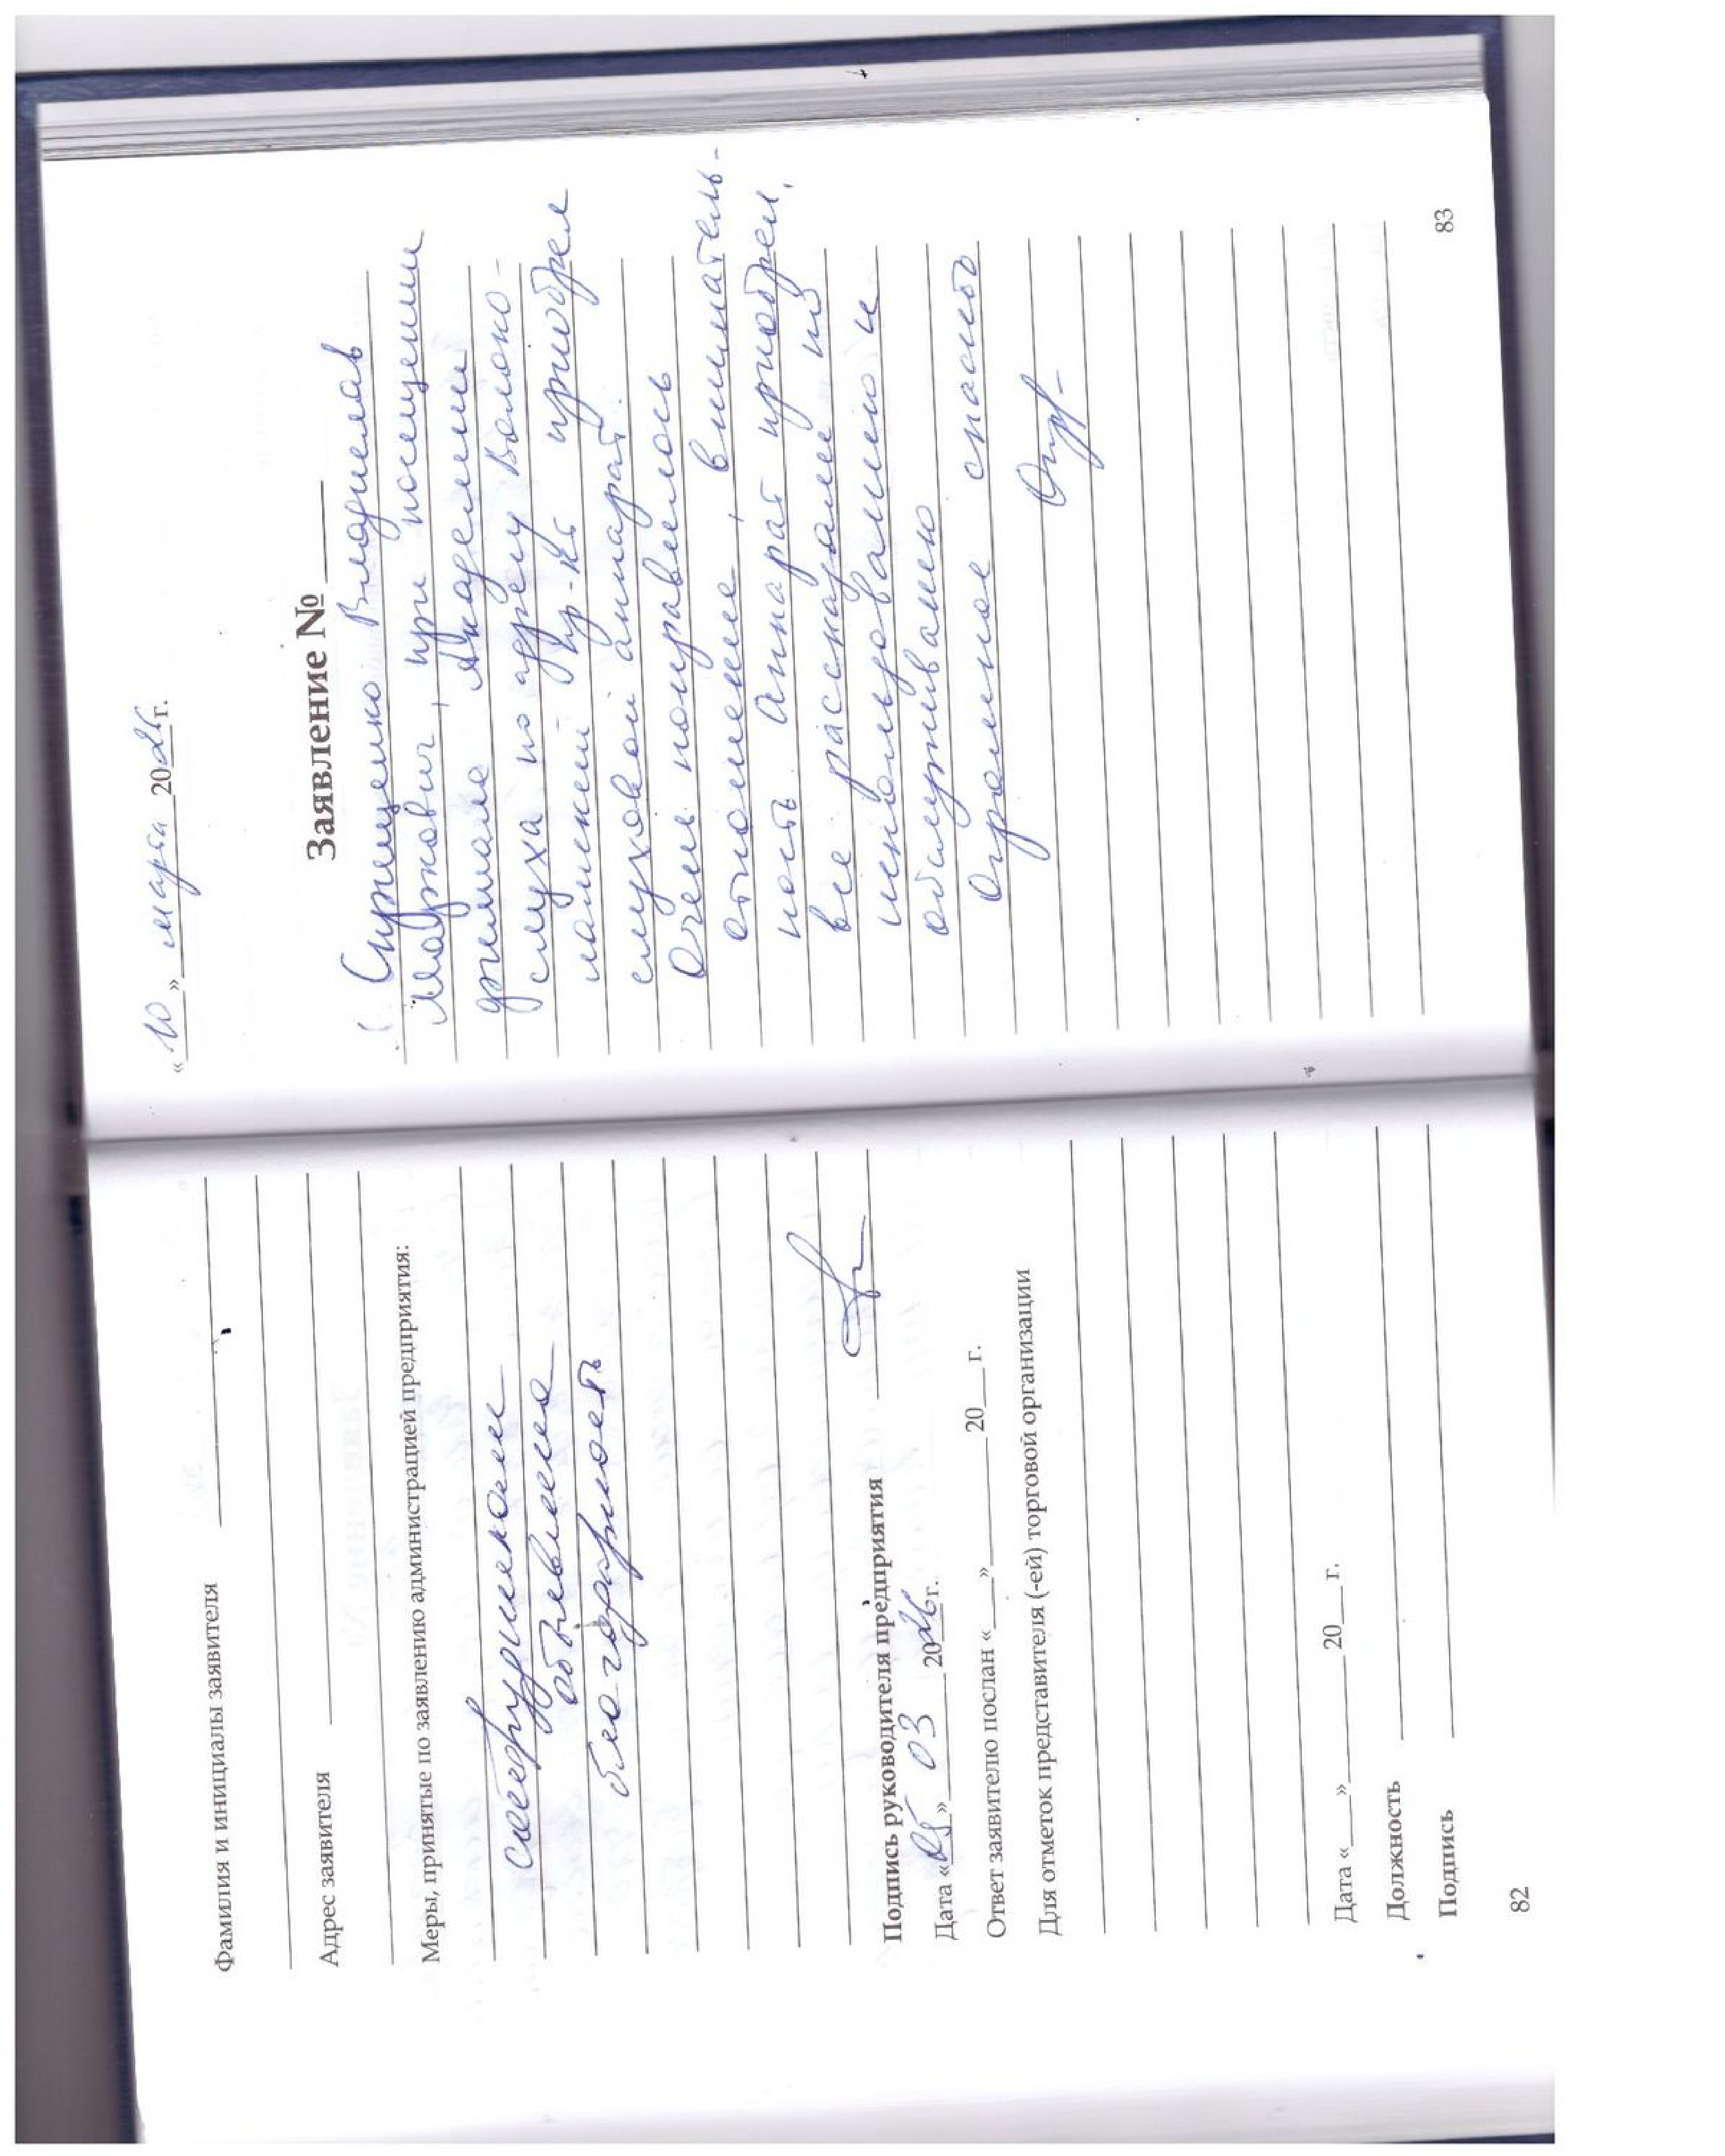 Фамилия и инициалы заявителя
Адрес заявителя
Меры, принятые по заявлению администрацией предприятия:
сотрудникам
объявлена
благодарность
Подпись руководителя предприятия
Дата «05» 03 2026 г.
Ответ заявителю послан «___» ______ 20__ г.
Для отметок представителя (-ей) торговой организации
Дата «___» ______ 20__ г.
Должность
Подпись
82
«10» марта 2026 г.
Заявление № ____
Владислав
Маркович, при посещении
филиала Академии
слуха по адресу Волоко-
ламский пр-кт приобрел
слуховой аппарат.
Очень понравилось
отношение, вниматель-
ность. Аппарат приобрел,
все рассказали по
использованию и
обслуживанию
Огромное спасибо
83